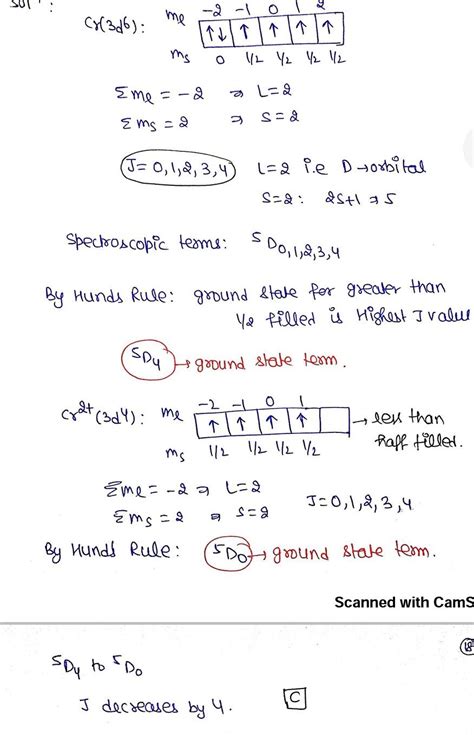 Solⁿ:
Cr(3d⁶): mℓ -2 -1 0 1 2
↑↓ ↑ ↑ ↑ ↑
ms 0 1/2 1/2 1/2 1/2
Σmℓ = -2 ⇒ L=2
Σms = 2 ⇒ S=2
J=0,1,2,3,4 L=2 i.e D→orbital
S=2: 2S+1 ⇒ 5
Spectroscopic terms: ⁵D0,1,2,3,4
By Hunds Rule: ground state for greater than
1/2 filled is Highest J value
⁵D₄ → ground state term.
Cr²⁺(3d⁴): mℓ -2 -1 0 1
↑ ↑ ↑ ↑ → less than
ms 1/2 1/2 1/2 1/2 half filled.
Σmℓ = -2 ⇒ L=2
Σms = 2 ⇒ S=2 J=0,1,2,3,4
By Hunds Rule: ⁵D₀ → ground state term.
Scanned with CamS
18
⁵D₄ to ⁵D₀
J decreases by 4. C